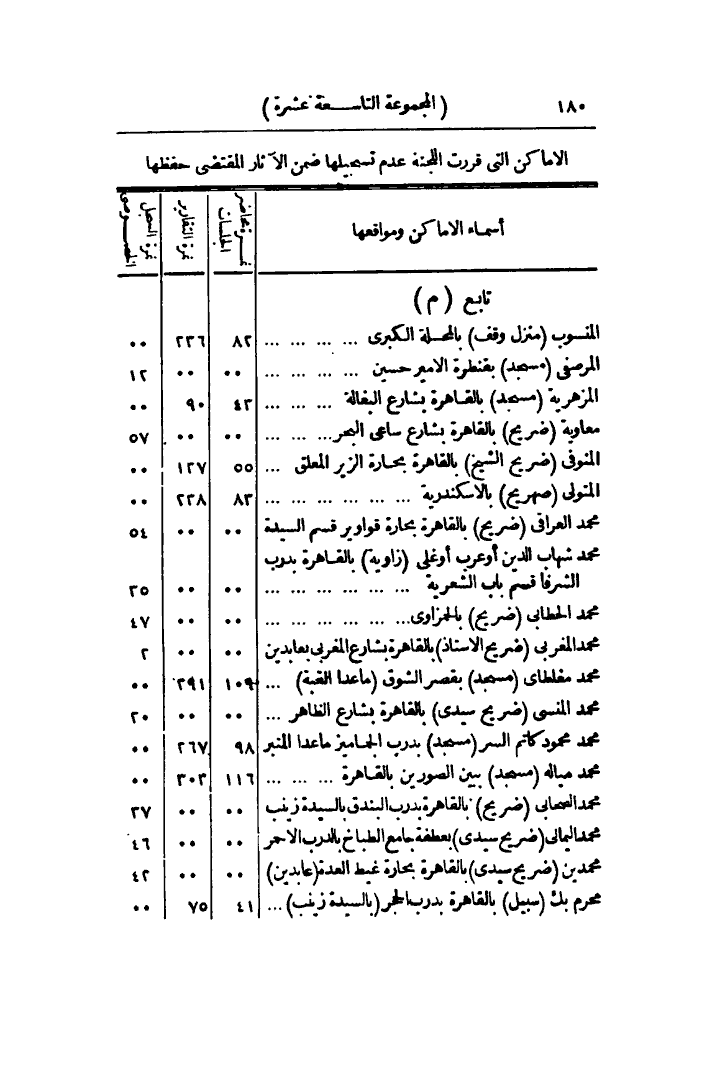 ١٨٠ (المجموعة التاسعة عشرة)
الاماكن التى قررت اللجنة عدم تسجيلها ضمن الآثار المقتضى حفظها
أسماء الاماكن ومواقعها | نمرة محاضر الجلسات | نمرة التقارير | نمرة السجل الخصوصى
تابع (م)
المنسوب (منزل وقف) بالمحلة الكبرى ... ... ... ... ٨٢ ٢٢٦ ٠٠
المرصفى (مسجد) بقنطرة الامير حسين ... ... ... ... ٠٠ ٠٠ ١٢
المزهرية (مسجد) بالقاهرة بشارع البغالة ... ... ... ٤٣ ٩٠ ٠٠
معاوية (ضريح) بالقاهرة بشارع ساعى البحر... ... ... ٠٠ ٠٠ ٥٧
المنوفى (ضريح الشيخ) بالقاهرة بحارة الزير المعلق ... ٥٥ ١٢٧ ٠٠
المتولى (صهريج) بالاسكندرية ... ... ... ... ... ... ٨٣ ٢٢٨ ٠٠
محمد العراقى (ضريح) بالقاهرة بحارة قواوير قسم السيدة ٠٠ ٠٠ ٥٤
محمد شهاب الدين أوعرب أوغلى (زاوية) بالقاهرة بدرب
الشرفا قسم باب الشعرية ... ... ... ... ... ... ٠٠ ٠٠ ٣٥
محمد الحطابى (ضريح) بالحمزاوى... ... ... ... ... ... ٠٠ ٠٠ ٤٧
محمد المغربى (ضريح الاستاذ) بالقاهرة بشارع المغربى بعابدين ٠٠ ٠٠ ٢
محمد مغلطاى (مسجد) بقصر الشوق (ماعدا القبة) ... ١٠٩ ٢٩١ ٠٠
محمد المنسى (ضريح سيدى) بالقاهرة بشارع الظاهر ... ٠٠ ٠٠ ٢٠
محمد محمود كاتم السر (مسجد) بدرب الجماميز ماعدا المنبر ٩٨ ٢٦٧ ٠٠
محمد مياله (مسجد) ببين الصورين بالقاهرة ... ... ... ١١٦ ٣٠٣ ٠٠
محمد الصحابى (ضريح) بالقاهرة بدرب البندق بالسيدة زينب ٠٠ ٠٠ ٣٧
محمد اليمانى (ضريح سيدى) بعطفة جامع الطباخ بالدرب الاحمر ٠٠ ٠٠ ٤٦
محمدين (ضريح سيدى) بالقاهرة بحارة غيط العدة (عابدين) ٠٠ ٠٠ ٤٢
محرم بك (سبيل) بالقاهرة بدرب الحجر (بالسيدة زينب) ... ٤١ ٧٥ ٠٠